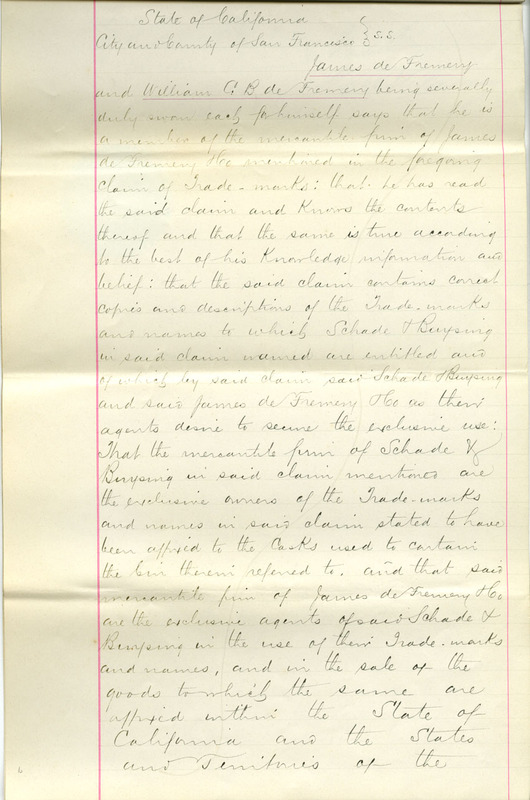 State of California
City and County of San Francisco } S.S.
James de Fremery
and William C. B. de Fremery being severally
duly sworn each for himself says that he is
a member of the mercantile firm of James
de Fremery & Co mentioned in the foregoing
claim of Trade-marks: that he has read
the said claim and knows the contents
thereof and that the same is true according
to the best of his knowledge information and
belief: that the said claim contains correct
copies and descriptions of the Trade-marks
and names to which Schade & Buysing
in said claim named are entitled and
of which by said claim said Schade & Buysing
and said James de Fremery & Co as their
agents desire to secure the exclusive use:
That the mercantile firm of Schade &
Buysing in said claim mentioned are
the exclusive owners of the Trade-marks
and names in said claim stated to have
been affixed to the Casks used to contain
the Gin therein referred to. and that said
mercantile firm of James de Fremery & Co
are the exclusive agents of said Schade &
Buysing in the use of their Trade-marks
and names, and in the sale of the
goods to which the same are
affixed within the State of
California and the States
and Territories of the
6